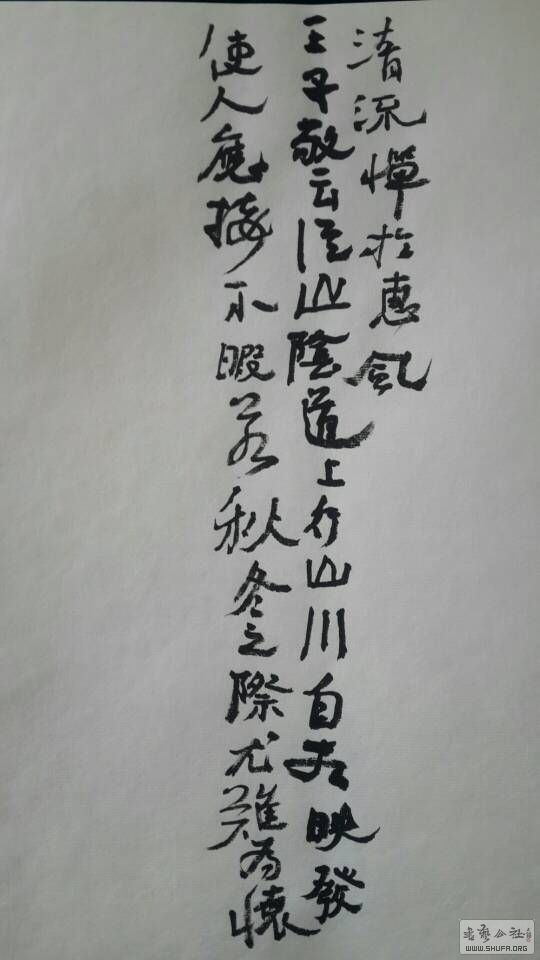 清流惮於惠風
王子敬云從山陰道上行山川自相映發
使人應接不暇若秋冬之際尤難為懷
书艺公社
WWW.SHUFA.ORG